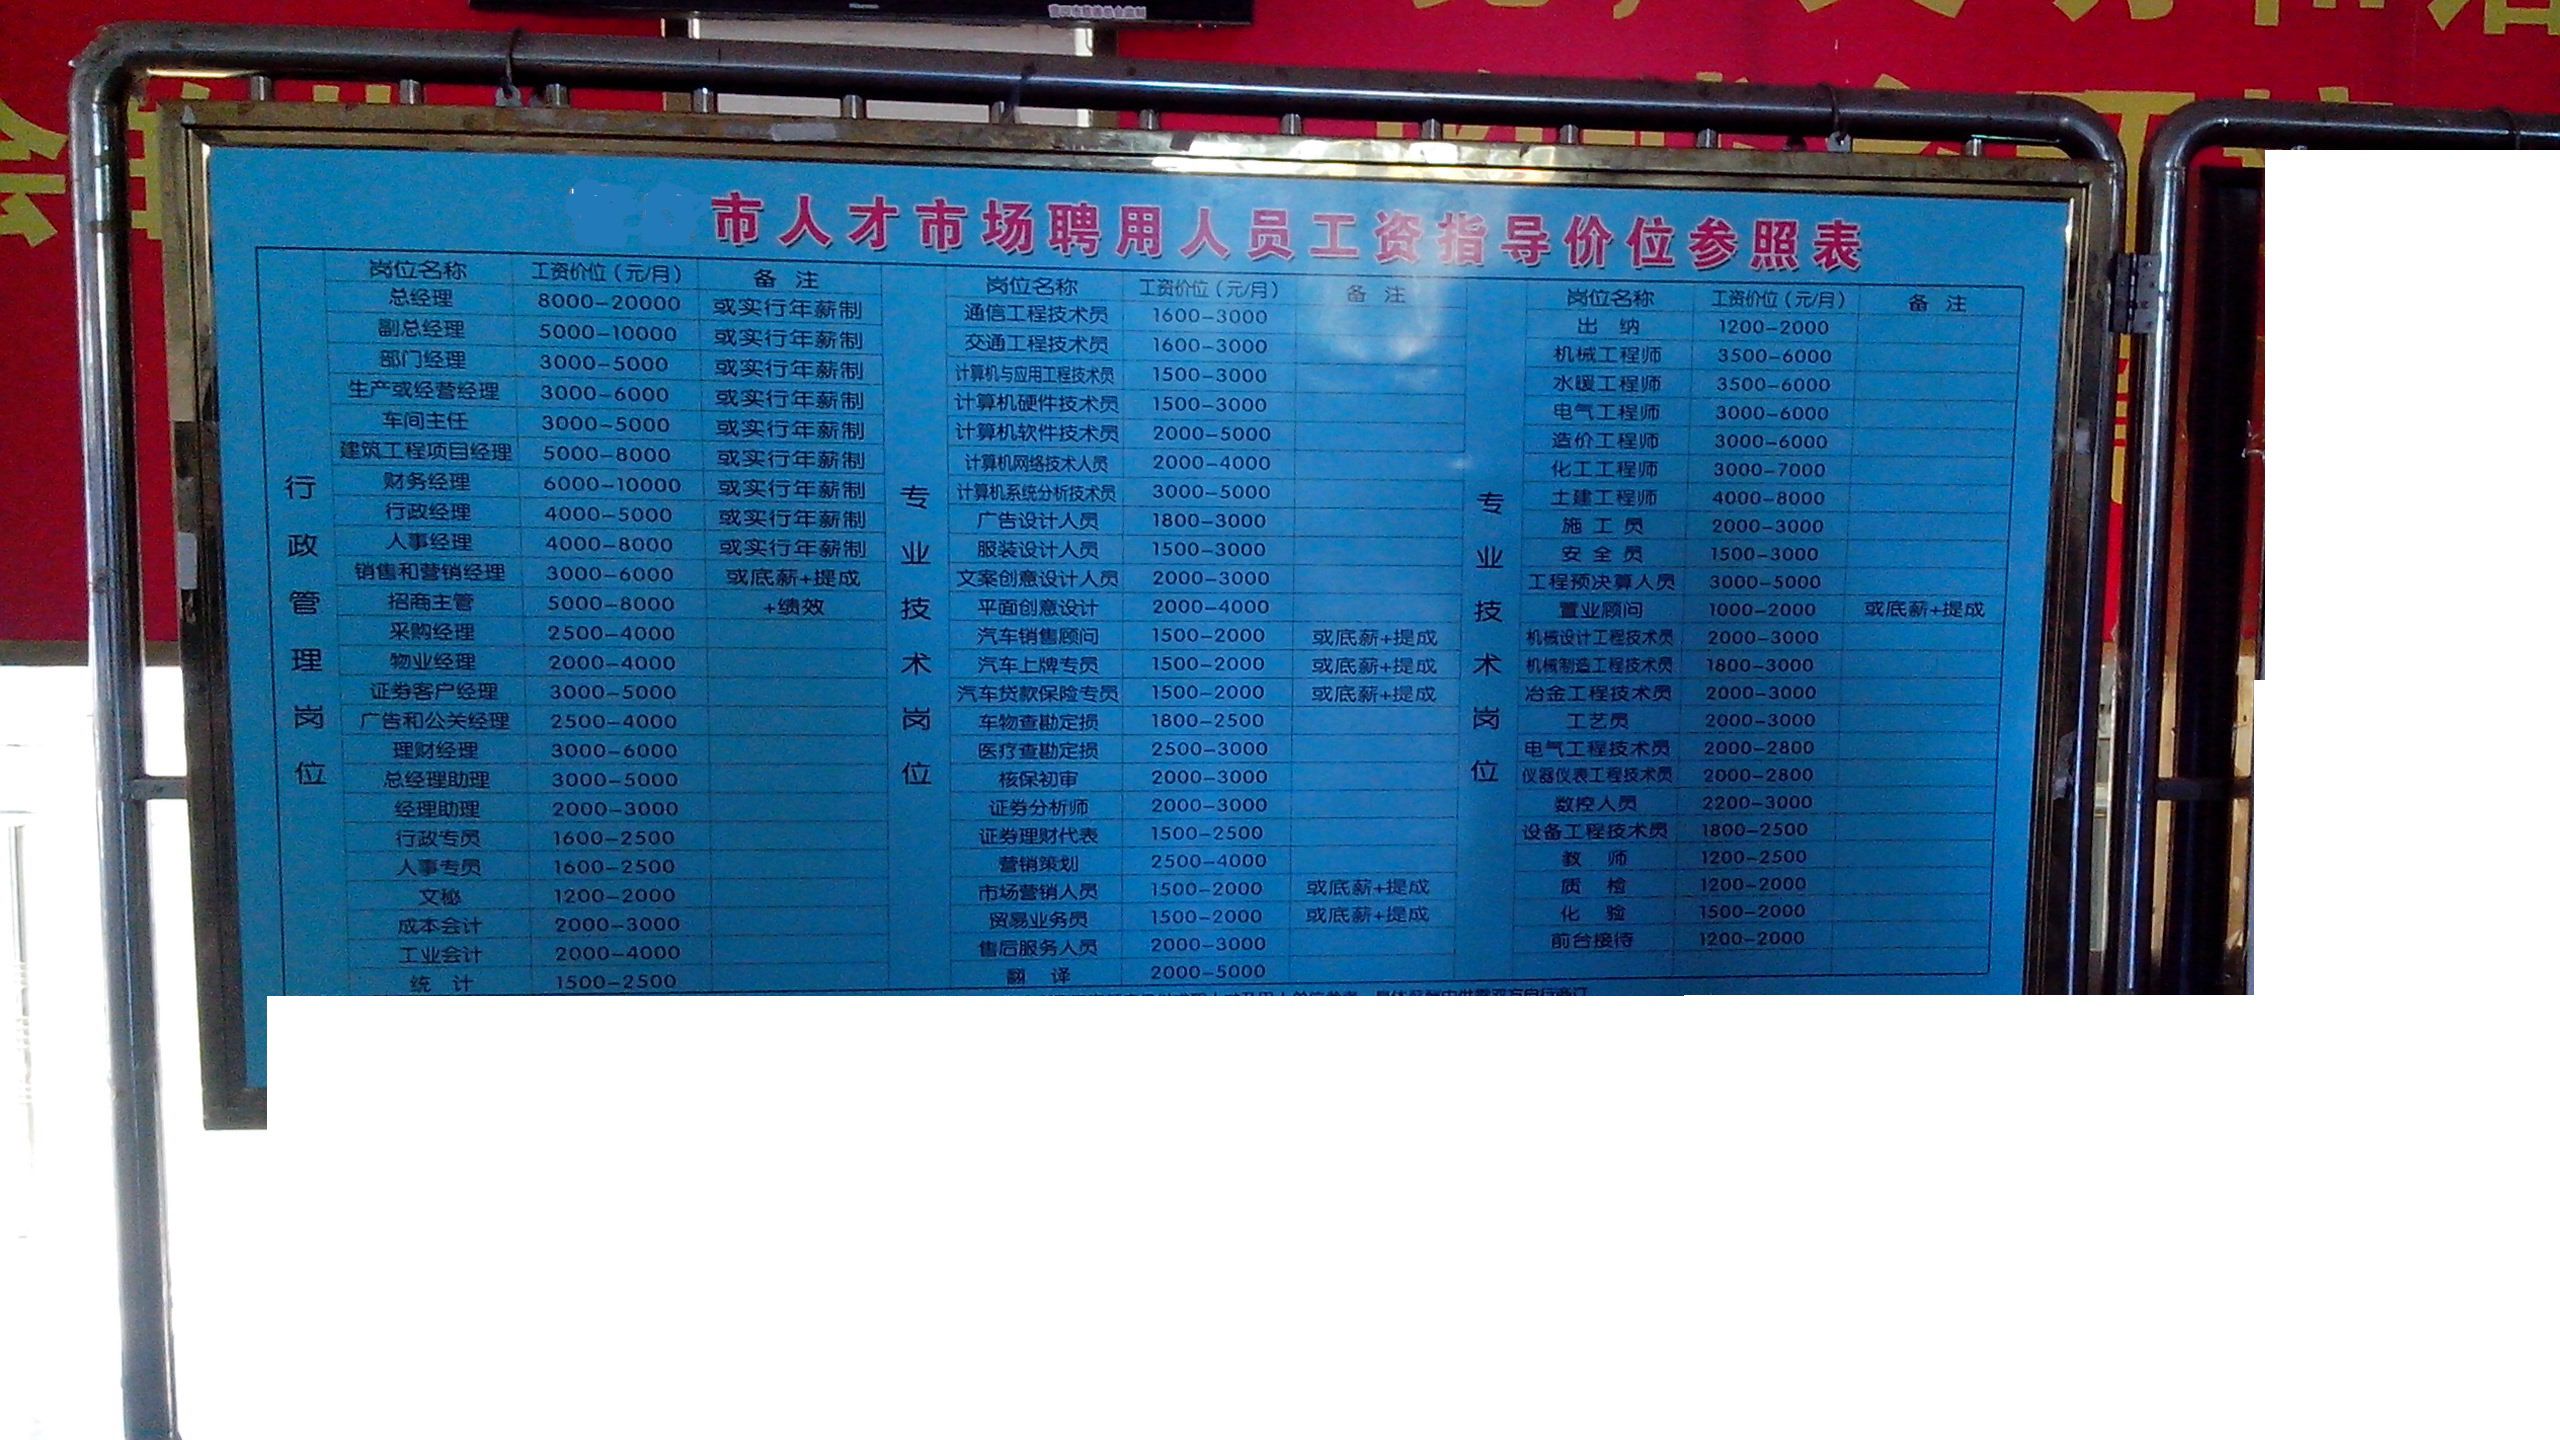 Hisense
市人才市场聘用人员工资指导价位参照表
行政管理岗位
岗位名称 工资价位（元/月） 备 注
总经理 8000-20000 或实行年薪制
副总经理 5000-10000 或实行年薪制
部门经理 3000-5000 或实行年薪制
生产或经营经理 3000-6000 或实行年薪制
车间主任 3000-5000 或实行年薪制
建筑工程项目经理 5000-8000 或实行年薪制
财务经理 6000-10000 或实行年薪制
行政经理 4000-5000 或实行年薪制
人事经理 4000-8000 或实行年薪制
销售和营销经理 3000-6000 或底薪+提成
招商主管 5000-8000 +绩效
采购经理 2500-4000
物业经理 2000-4000
证券客户经理 3000-5000
广告和公关经理 2500-4000
理财经理 3000-6000
总经理助理 3000-5000
经理助理 2000-3000
行政专员 1600-2500
人事专员 1600-2500
文秘 1200-2000
成本会计 2000-3000
工业会计 2000-4000
统 计 1500-2500
专业技术岗位
岗位名称 工资价位（元/月） 备 注
通信工程技术员 1600-3000
交通工程技术员 1600-3000
计算机与应用工程技术员 1500-3000
计算机硬件技术员 1500-3000
计算机软件技术员 2000-5000
计算机网络技术人员 2000-4000
计算机系统分析技术员 3000-5000
广告设计人员 1800-3000
服装设计人员 1500-3000
文案创意设计人员 2000-3000
平面创意设计 2000-4000
汽车销售顾问 1500-2000 或底薪+提成
汽车上牌专员 1500-2000 或底薪+提成
汽车贷款保险专员 1500-2000 或底薪+提成
车物查勘定损 1800-2500
医疗查勘定损 2500-3000
核保初审 2000-3000
证券分析师 2000-3000
证券理财代表 1500-2500
营销策划 2500-4000
市场营销人员 1500-2000 或底薪+提成
贸易业务员 1500-2000 或底薪+提成
售后服务人员 2000-3000
翻 译 2000-5000
专业技术岗位
岗位名称 工资价位（元/月） 备 注
出 纳 1200-2000
机械工程师 3500-6000
水暖工程师 3500-6000
电气工程师 3000-6000
造价工程师 3000-6000
化工工程师 3000-7000
土建工程师 4000-8000
施 工 员 2000-3000
安 全 员 1500-3000
工程预决算人员 3000-5000
置业顾问 1000-2000 或底薪+提成
机械设计工程技术员 2000-3000
机械制造工程技术员 1800-3000
冶金工程技术员 2000-3000
工艺员 2000-3000
电气工程技术员 2000-2800
仪器仪表工程技术员 2000-2800
数控人员 2200-3000
设备工程技术员 1800-2500
教 师 1200-2500
质 检 1200-2000
化 验 1500-2000
前台接待 1200-2000